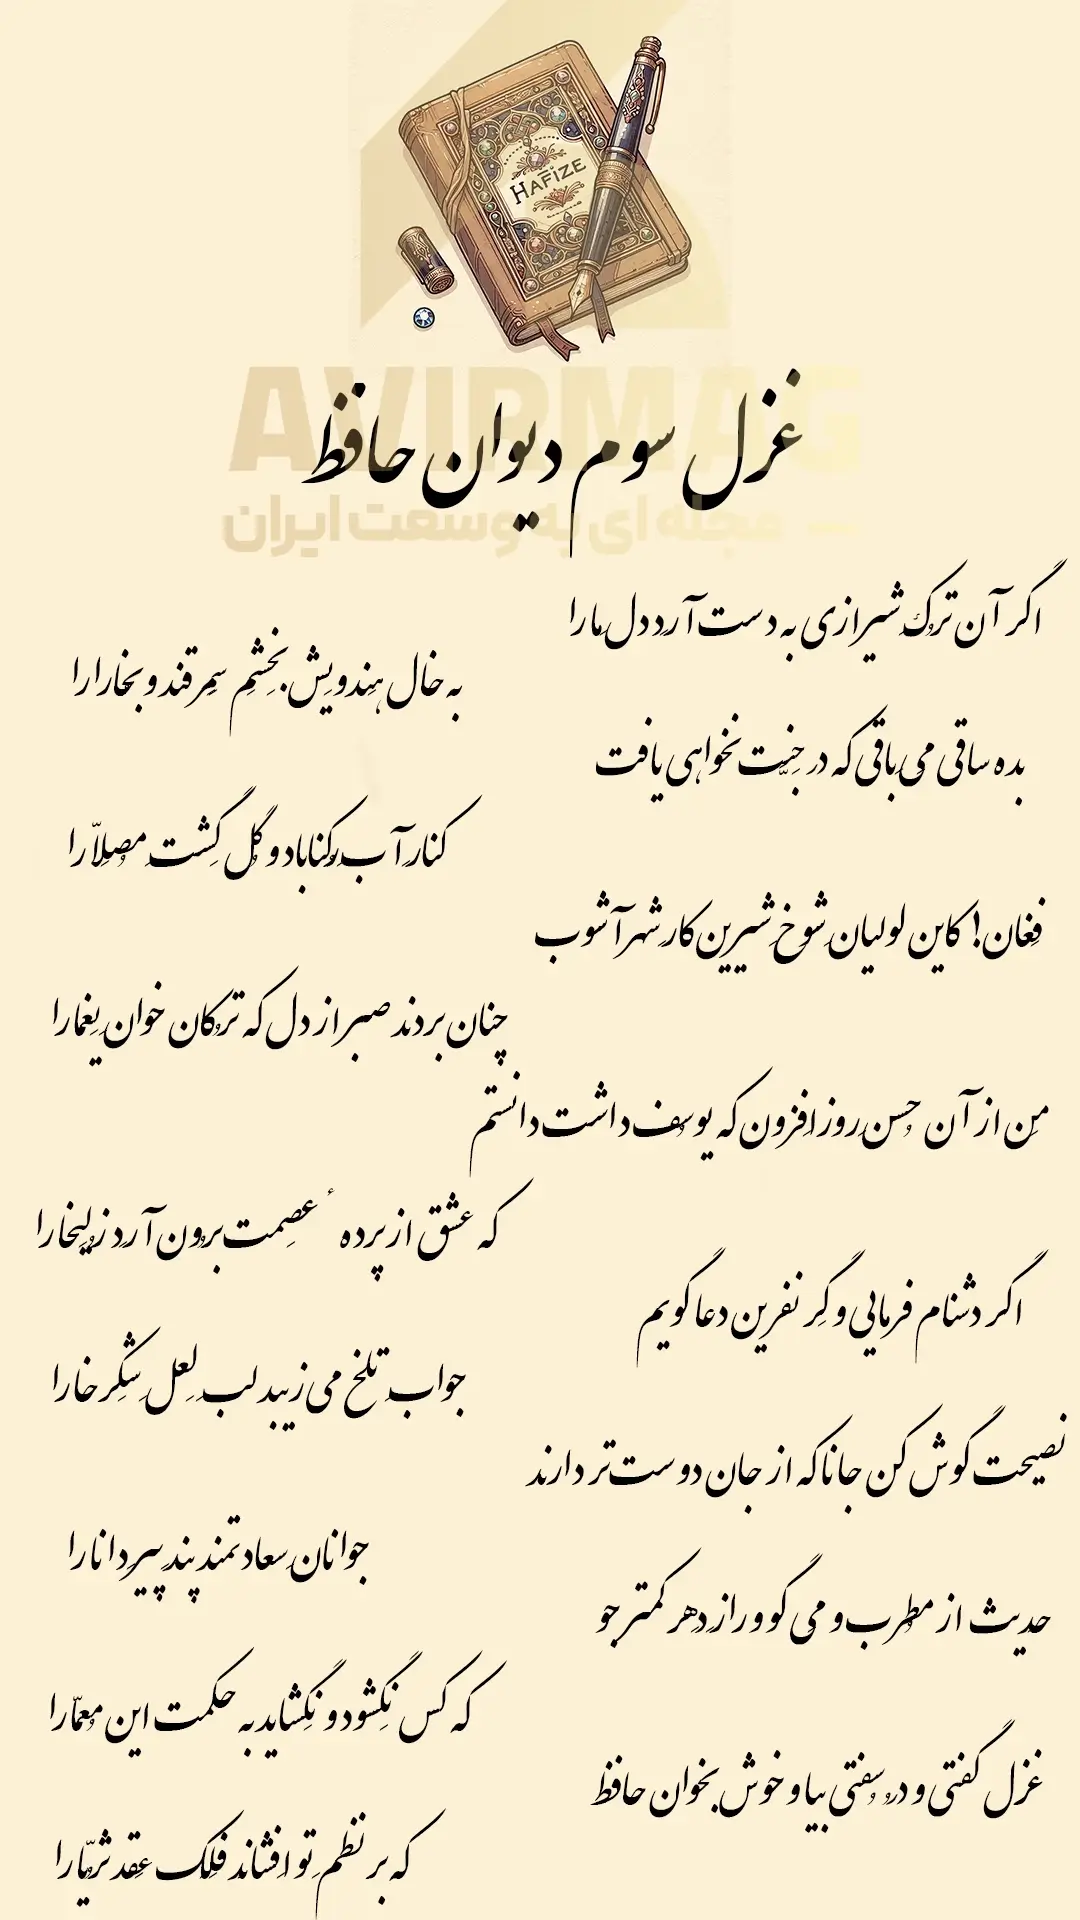 HAFIZE
AVIRMAG
مجله ای به وسعت ایران
غزل سوم دیوان حافظ
اگر آن تُرک شیرازی به دست آرد دل ما را
به خال هِندویش بخشم سمرقند و بخارا را
بده ساقی می باقی که در جنّت نخواهی یافت
کنار آب رکناباد و گلگشت مصلّا را
فغان! کاین لولیان شوخ شیرین کار شهرآشوب
چنان بردند صبر از دل که ترکان خوان یغما را
من از آن حسن روزافزون که یوسف داشت دانستم
که عشق از پردهٔ عصمت برون آرد زلیخا را
اگر دشنام فرمایی و گر نفرین دعا گویم
جواب تلخ می زیبد لب لعل شکرخا را
نصیحت گوش کن جانا که از جان دوست تر دارند
جوانان سعادتمند پند پیر دانا را
حدیث از مطرب و می گو و راز دهر کمتر جو
که کس نگشود و نگشاید به حکمت این معمّا را
غزل گفتی و در سفتی بیا و خوش بخوان حافظ
که بر نظم تو افشاند فلک عقد ثریّا را